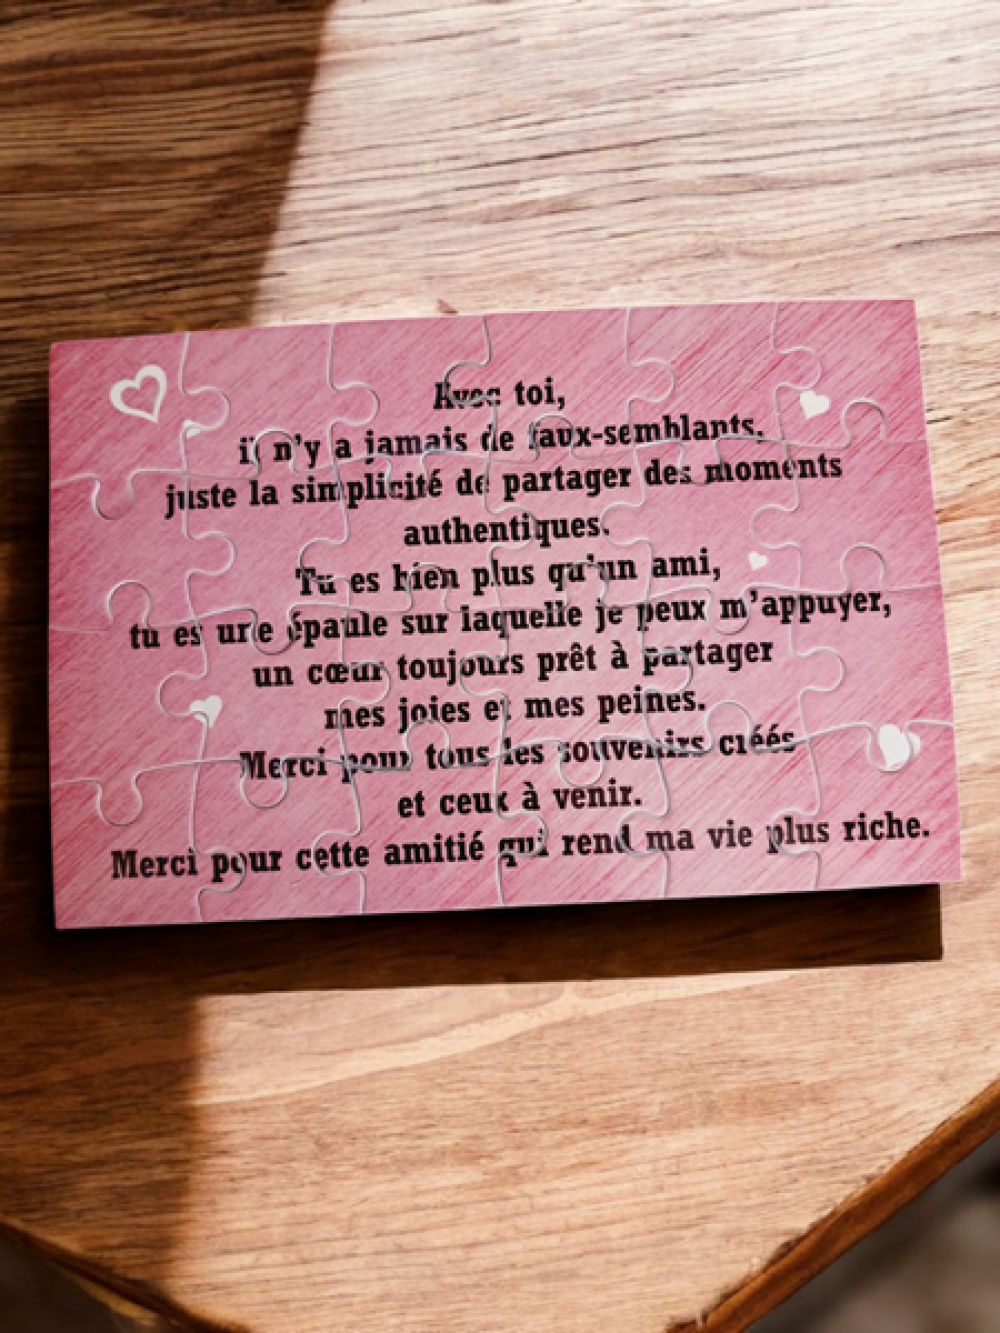 Avec toi,
il n'y a jamais de faux-semblants,
juste la simplicité de partager des moments
authentiques.
Tu es bien plus qu'un ami,
tu es une épaule sur laquelle je peux m'appuyer,
un cœur toujours prêt à partager
mes joies et mes peines.
Merci pour tous les souvenirs créés
et ceux à venir.
Merci pour cette amitié qui rend ma vie plus riche.